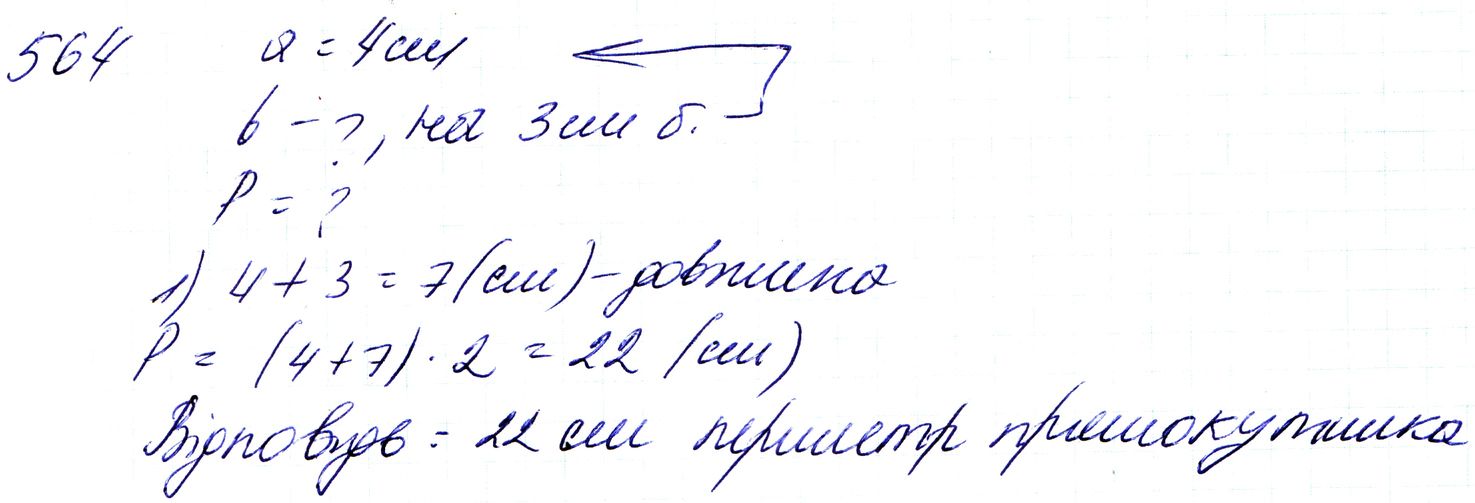 564 a = 4 см
b - ?, на 3 см б.
P = ?
1) 4 + 3 = 7 (см) - довжина
P = (4 + 7) · 2 = 22 (см)
Відповідь = 22 см периметр прямокутника